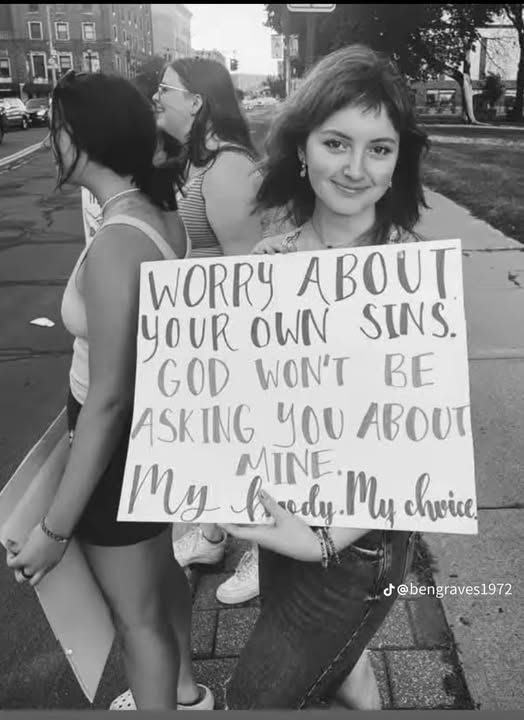 WORRY ABOUT
YOUR OWN SINS.
GOD WON'T BE
ASKING YOU ABOUT
MINE.
My body. My choice.
@bengraves1972